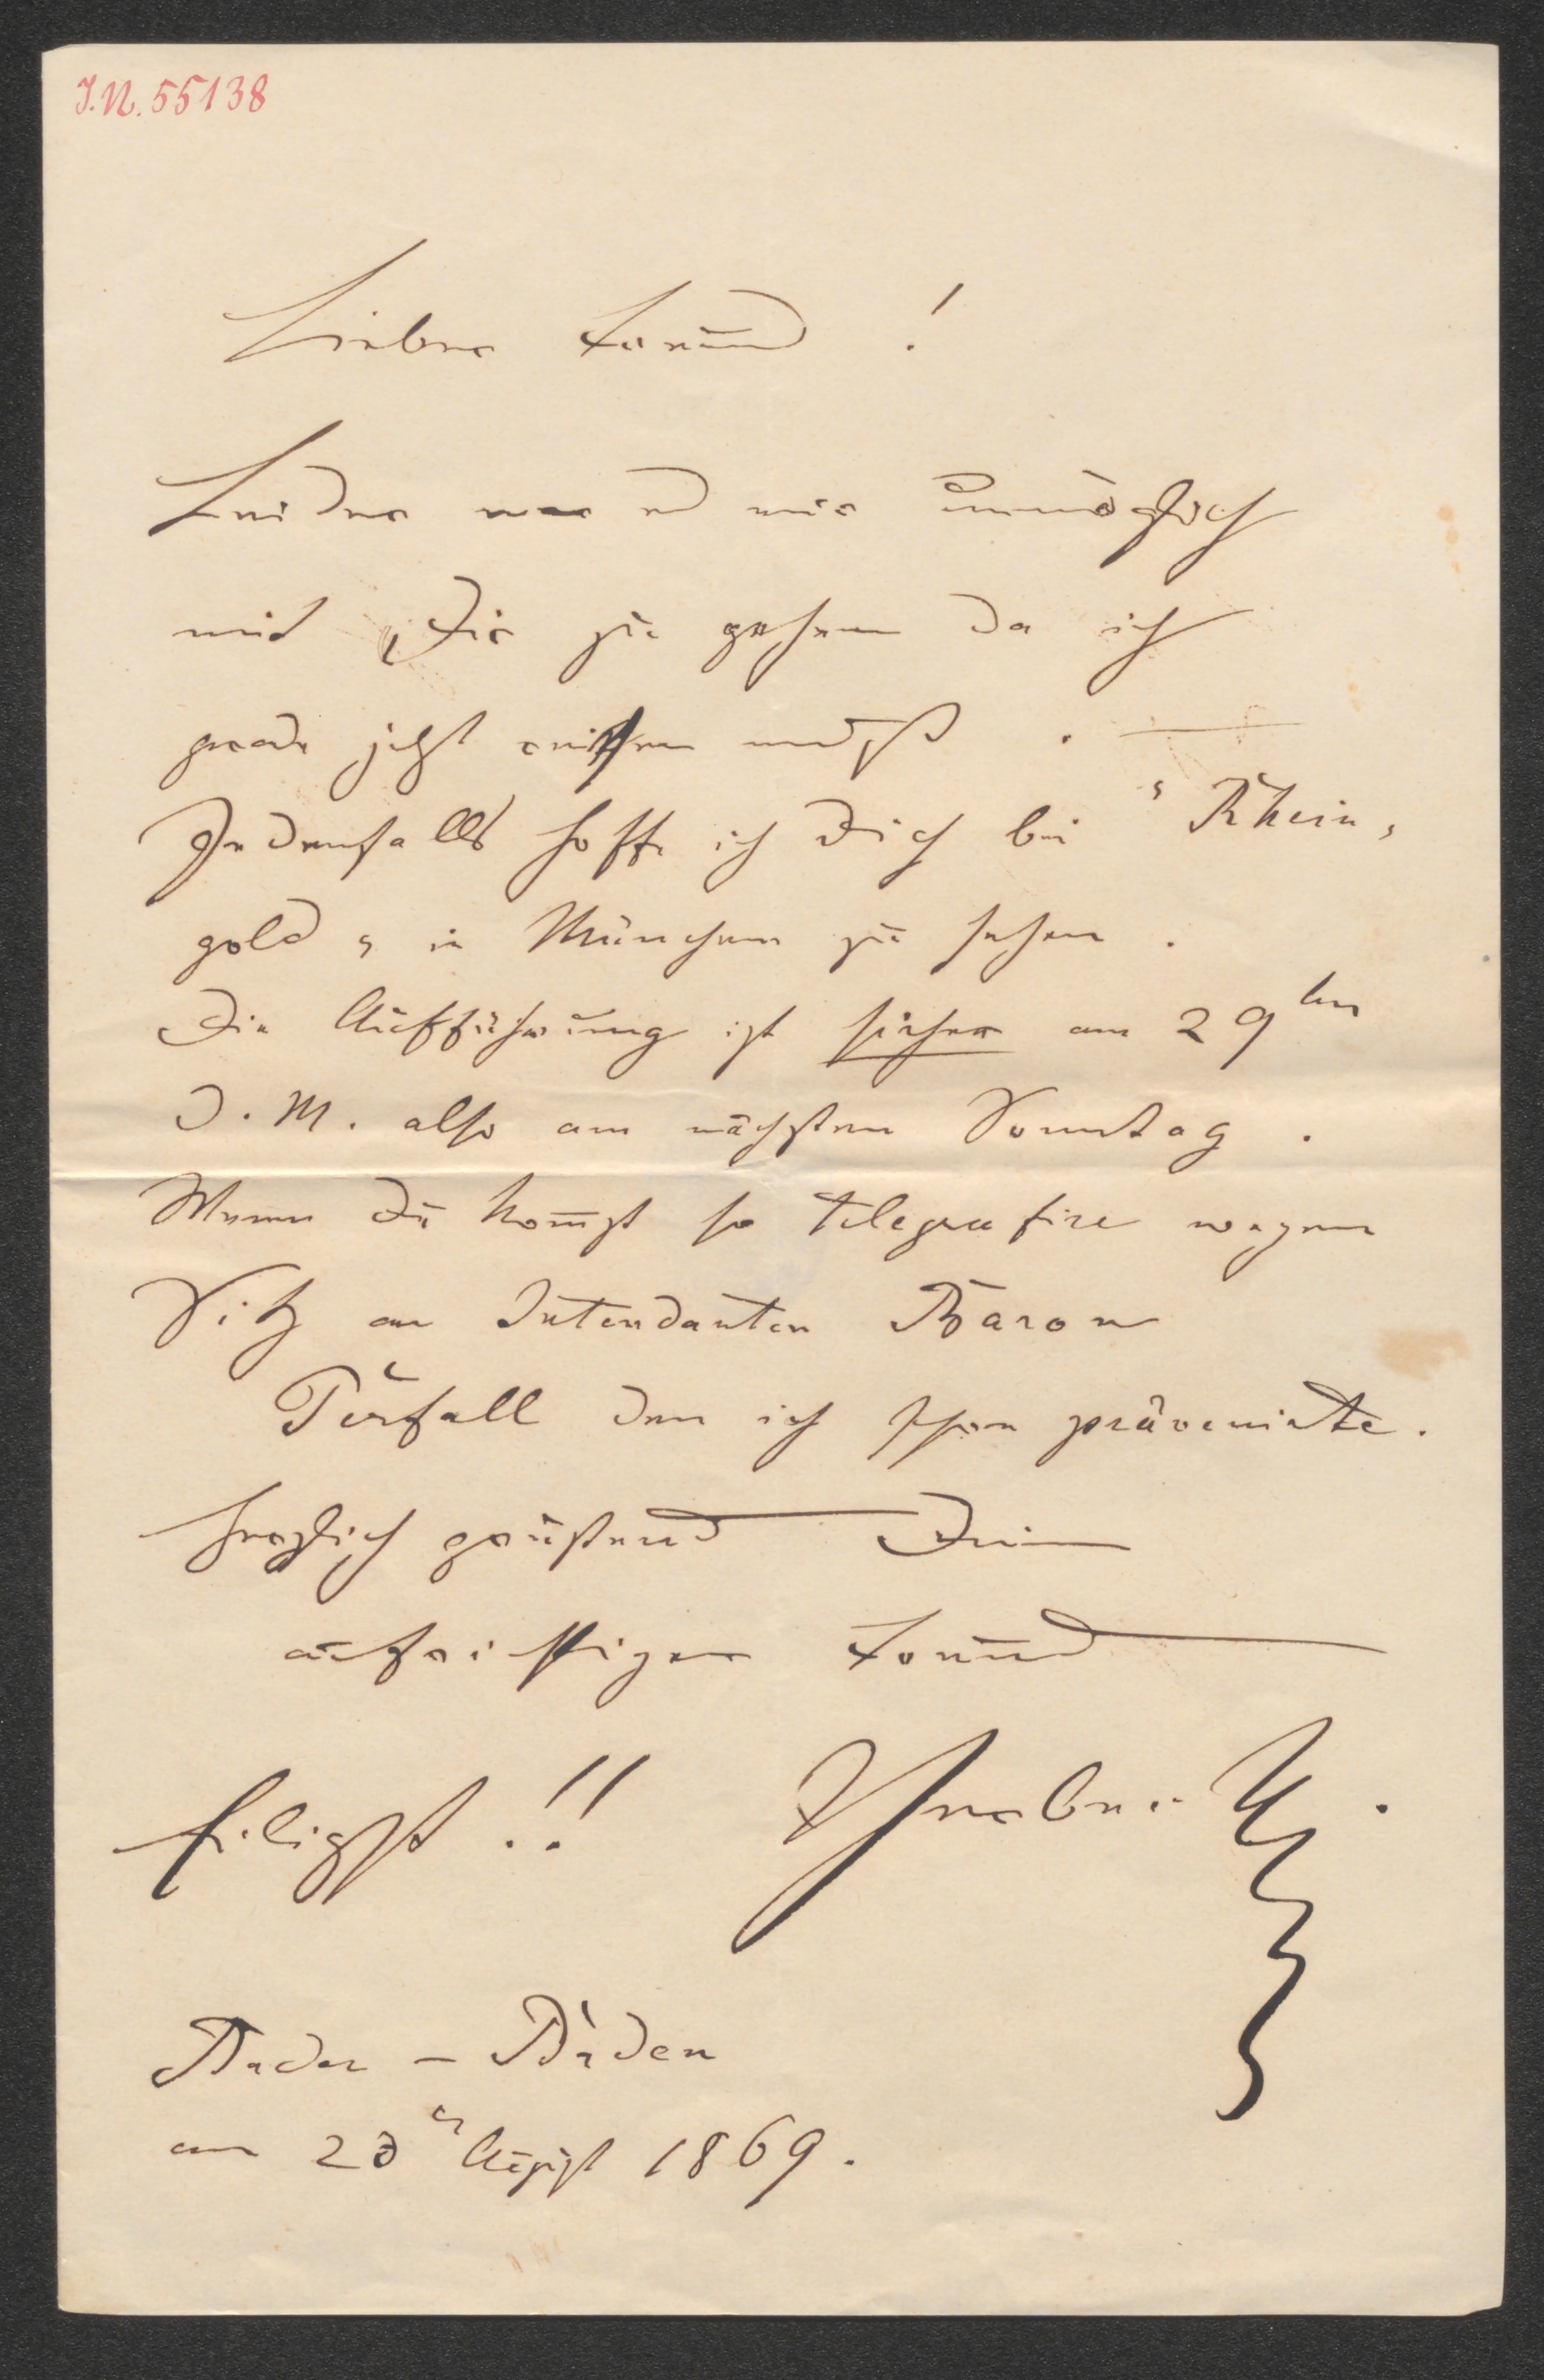 J.N. 55138
Lieber Freund !
Leider war es mir unmöglich
mit Dir zu gehen da ich
grade jetzt reisen mußte .
Jedenfalls hoffe ich Dich bei "Rhein=
gold" in München zu sehen .
Die Aufführung ist sicher am 29ten
d. M. also am nächsten Sonntag .
Wenn du kommst so telegrafire wegen
Sitz an Intendanten Baron
Perfall den ich schon prävenirte .
Herzlich grüßend Dein
aufrichtiger Freund
Eiligst !! Herbeck .
Baden - Baden
am August 1869 .